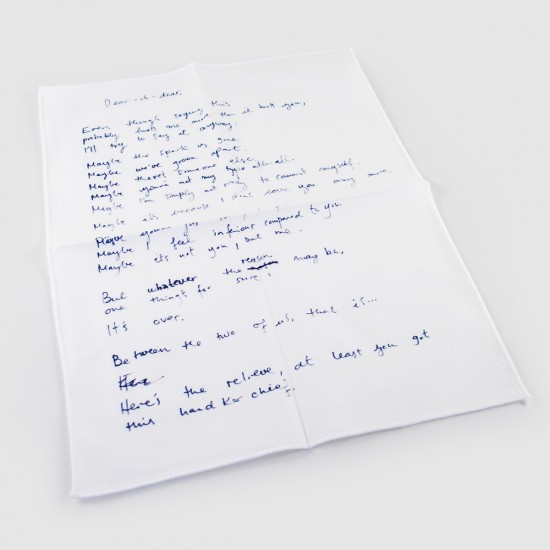 Dear -oh- dear,
Even though saying this
probably hurts me more than it hurts you,
I'll try to say it anyway:
Maybe the spark is gone.
Maybe we've grown apart.
Maybe there's someone else.
Maybe you're not my type after all.
Maybe I'm simply not ready to commit myself.
Maybe it's because I don't love you any more.
Maybe
Maybe I feel inferious compared to you.
Maybe its not you, but me.
But whatever the reason may be,
one thing's for sure:
It's over.
Between the two of us, that is...
Here's the relieve, at least you got
this handkerchief.